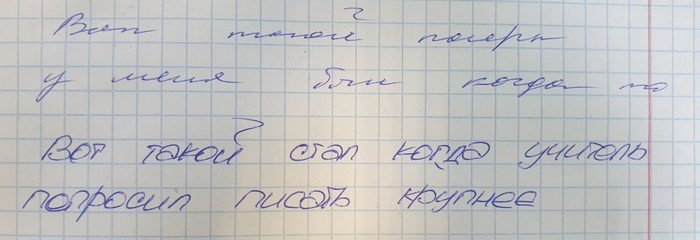 Вот такой почерк
у меня был когда то
Вот такой стал когда учитель
попросил писать крупнее